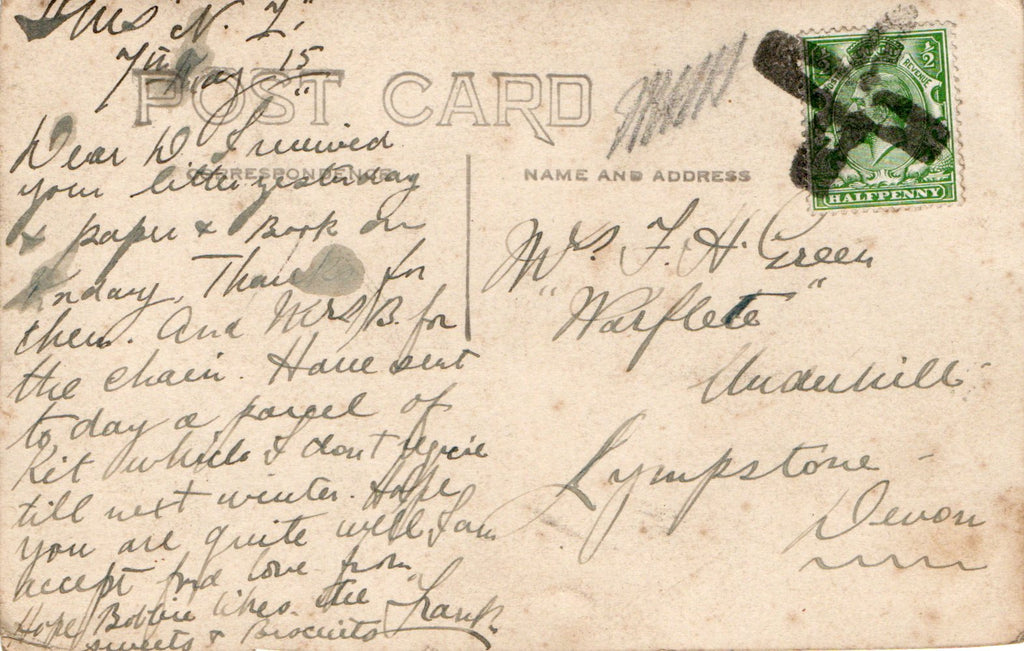 H.M.S "N. Z."
7th May 15
POST CARD
CORRESPONDENCE
NAME AND ADDRESS
½
REVENUE
HALFPENNY
Dear D I received
your letter yesterday
& paper & Book on
Thanks for
them. And Mrs B. for
the chain. Have sent
to day a parcel of
Kit which I dont require
till next winter. Hope
you are quite well I am
accept fond love from
Frank
Hope Bobbie likes the
sweets & Biscuits
Mrs. F. H. Green
"Warflete"
Underhill
Lympstone
Devon